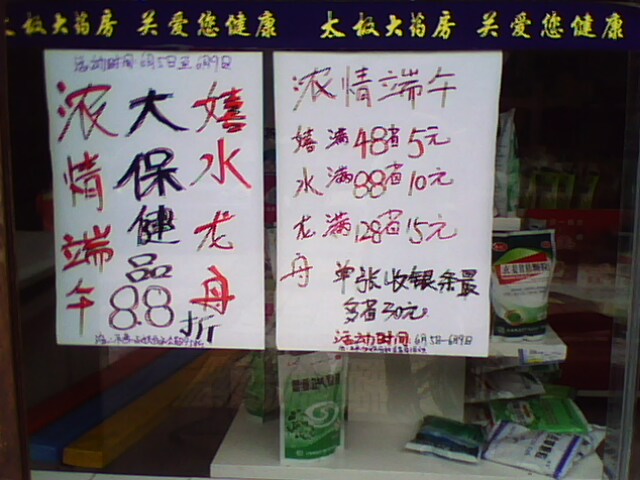 太极大药房 关爱您健康
太极大药房 关爱您健康
活动时间:6月5日至6月9日
浓情端午
大保健品8.8折
嬉水龙舟
浓情端午
嬉水龙舟
满48省5元
满88省10元
满128省15元
单张收银条最
多省30元
活动时间:6月5日—6月9日